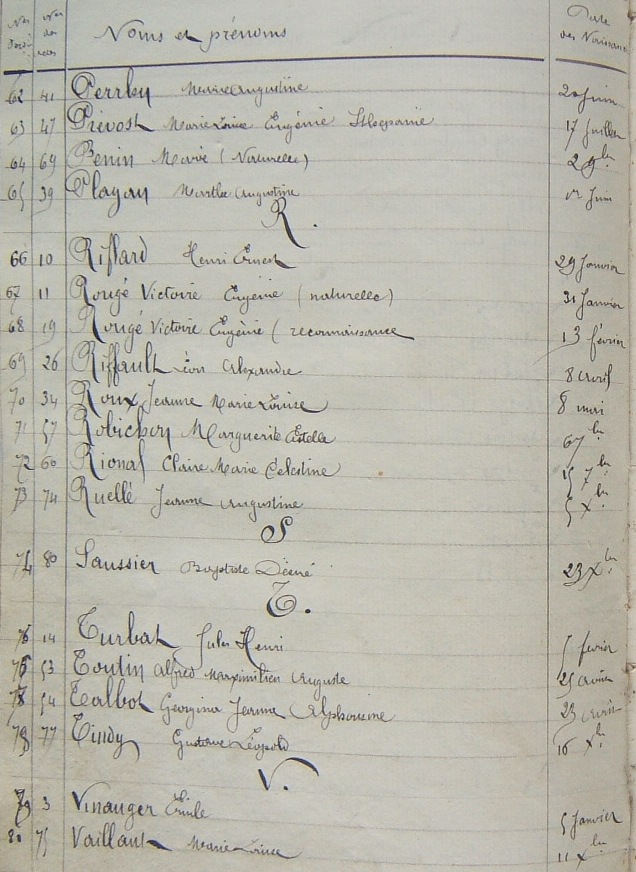 Nos d'ordre Nos des actes Noms et prénoms Date des Naissances
62 41 Perrby Marie Augustine 20 Juin
63 47 Prévost Marie Louise Eugénie Stéphanie 17 Juillet
64 69 Penin Marie (Naturelle) 2 9bre
65 39 Playau Marthe Augustine 1er Juin
R.
66 10 Riffard Henri Ernest 29 Janvier
67 11 Rougé Victoire Eugénie (naturelle) 31 Janvier
68 19 Rougé Victoire Eugénie (reconnaissance 13 février
69 26 Riffault Léon Alexandre 8 avril
70 34 Roux Jeanne Marie Louise 8 mai
71 57 Robichon Marguerite Estella 6 7bre
72 60 Rional Claire Marie Célestine 15 7bre
73 74 Ruellé Jeanne Augustine 5 Xbre
S
74 80 Saussier Baptiste Désiré 23 Xbre
T.
75 14 Turbat Jules Henri 5 fevrier
76 53 Toutin Alfred Maximilien Auguste 25 août
78 54 Talbot Georgina Jeanne Alphonsine 23 août
78 77 Tindy Gustave Léopold 16 Xbre
V.
79 3 Vinauger Emile 5 Janvier
80 75 Vaillant Marie Louise 11 Xbre